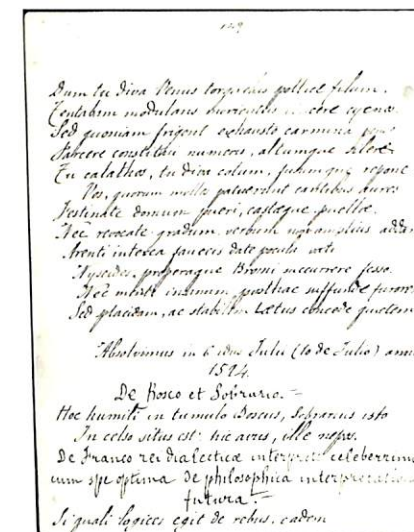 129
Dum tu diva Venus torquebis pollice filum.
Tentabam modulans auriculas cycnos
Sed quoniam frigent exhausto carmina
Parcere constitui numeris, altumque silere
Tu calathos, tu diva colum, fusumque repone
Vos, quorum molles patuerunt cantibus aures
Festinate domum pueri, castaeque puellae.
Nec revocate gradum, verbum non amplius addam
Arenti interea faucis date pocula vati
Nyseides, properaque Bromi succurrere fesso.
Nec mihi insanum posthac suffunde furorem
Sed placidam, ac stabilem Laetus concede quietem
Absolvimus in 6 idus Julii (10 de Julio) anni
1594.
De Bosco et Sobrario. =
Hoc humili in tumulo Boscus, Sobrarius isto
In celso situs est: hic avus, ille nepos.
De Franco rei dialecticae interprete celeberrimo
cum spe optima de philosophica interpretatione
futura. =
Si quali logices egit de rebus, eadem